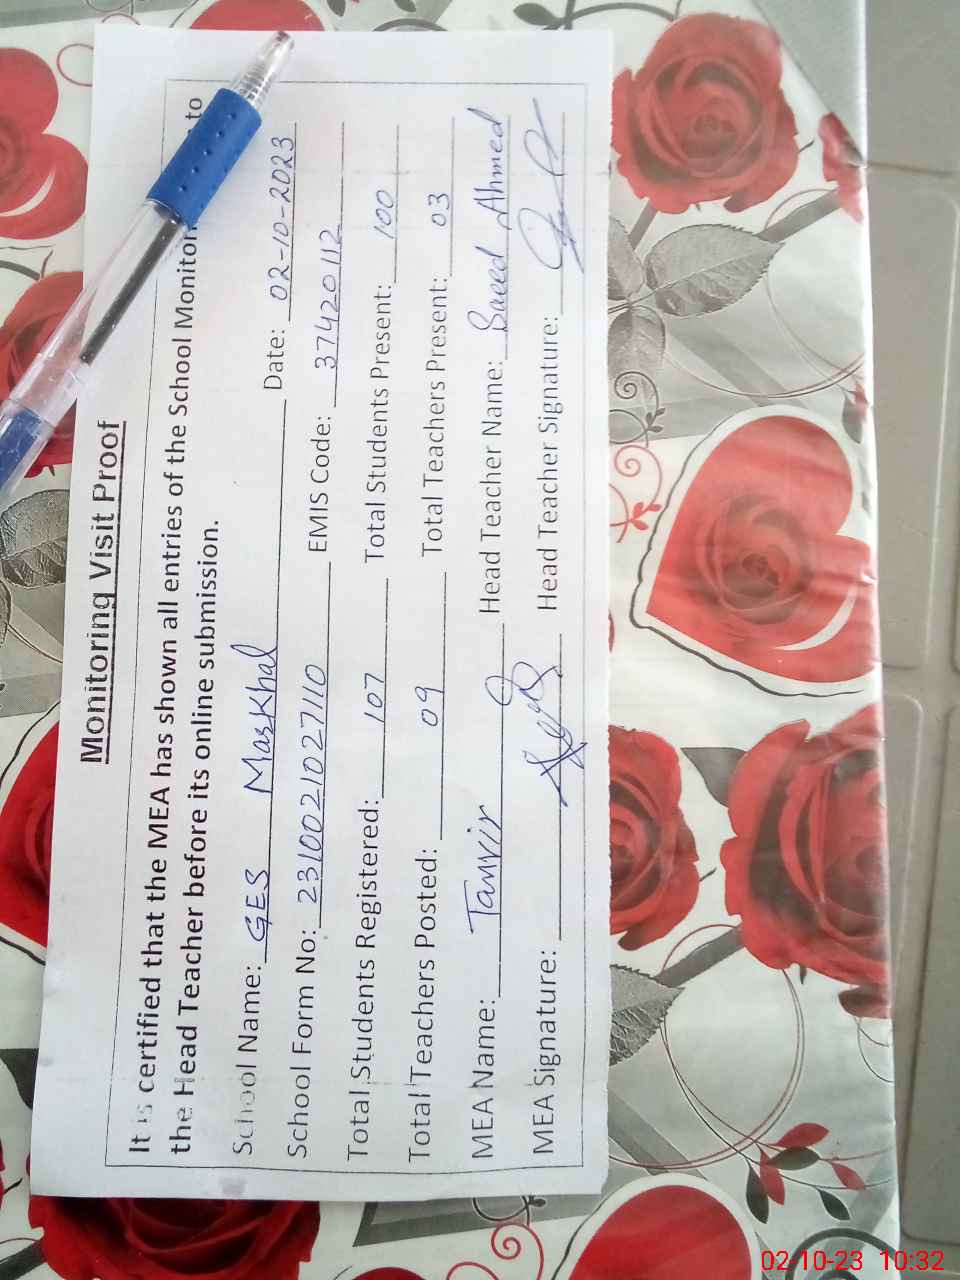 Monitoring Visit Proof
It is certified that the MEA has shown all entries of the School Monitor to
the Head Teacher before its online submission.
School Name: GES Maskhal Date: 02-10-2023
School Form No: 2310021027110 EMIS Code: 37420112
Total Students Registered: 107 Total Students Present: 100
Total Teachers Posted: 09 Total Teachers Present: 03
MEA Name: Tanvir Head Teacher Name: Saeed Ahmed
MEA Signature: Head Teacher Signature:
02-10-23 10:32